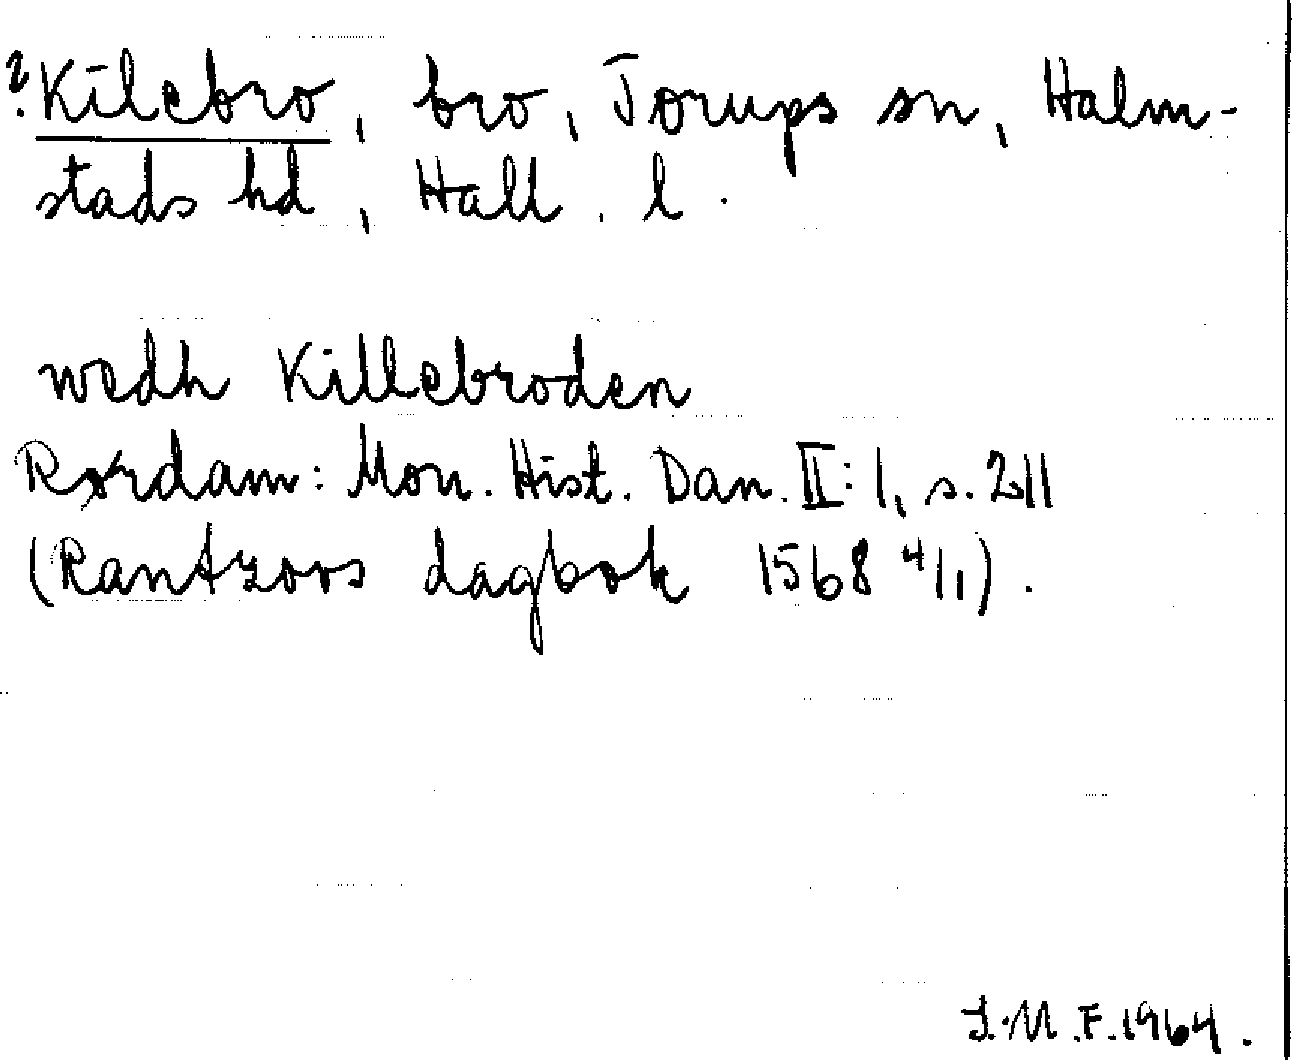 ?Kilebro, bro, Torups sn, Halm-
stads hd, Hall. l.
wedh Killebroden
Rørdam: Mon. Hist. Dan. II:1, s. 211
(Rantzovs dagbok 1568 4/1).
I.M.F. 1964.